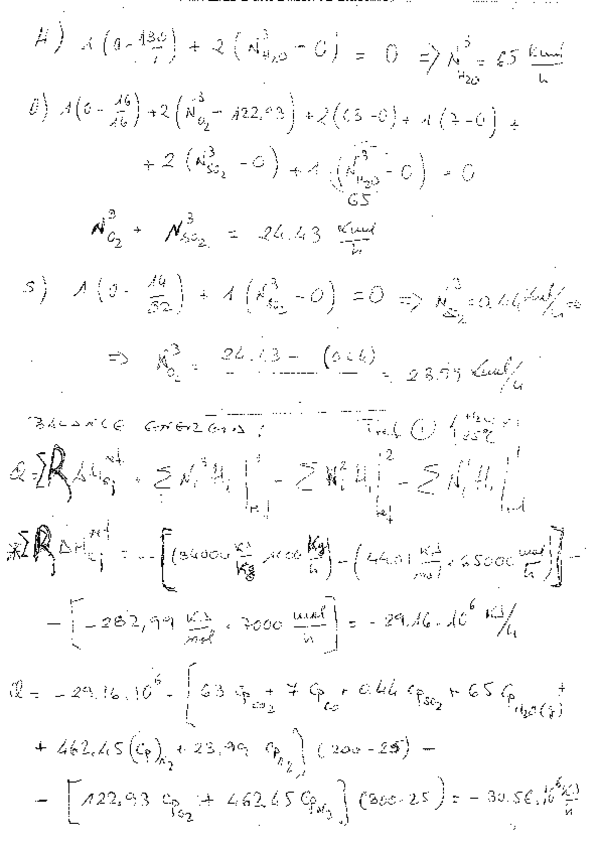 H) 1(0 - 130/1) + 2(N³H₂O - 0) = 0 => N³H₂O = 65 Kmol/h
O) 1(0 - 16/16) + 2(N³O₂ - 122,93) + 2(63-0) + 1(7-0) +
+ 2(N³SO₂ - 0) + 1(N³H₂O - 0) = 0
65
N³O₂ + N³SO₂ = 24.43 Kmol/h
S) 1(0 - 14/32) + 1(N³SO₂ - 0) = 0 => N³SO₂ = 0.44 Kmol/h =>
=> N³O₂ = 24.43 - (0.44) = 23.99 Kmol/h
BALANCE ENERGIA: Tref 25ºC
Q = ΣRj ΔHcj ref + ΣNi³Hi |³ref - ΣNi²Hi |²ref - ΣNi¹Hi |¹ref
*ΣRj ΔHcj ref = -[(34000 KJ/Kg · 1000 Kg/h) - (44.01 KJ/mol · 65000 mol/h)] -
- [-282,99 KJ/mol · 7000 mol/h] = -29.16·10⁶ KJ/h
Q = -29.16·10⁶ - [63 CpCO₂ + 7 CpCO + 0.44 CpSO₂ + 65 CpH₂O(g) +
+ 462.45(Cp)N₂ + 23,99 Cp ](200-25) -
- [122,93 CpO₂ + 462.45 CpN₂](300-25) = -30.56·10⁶ KJ/h